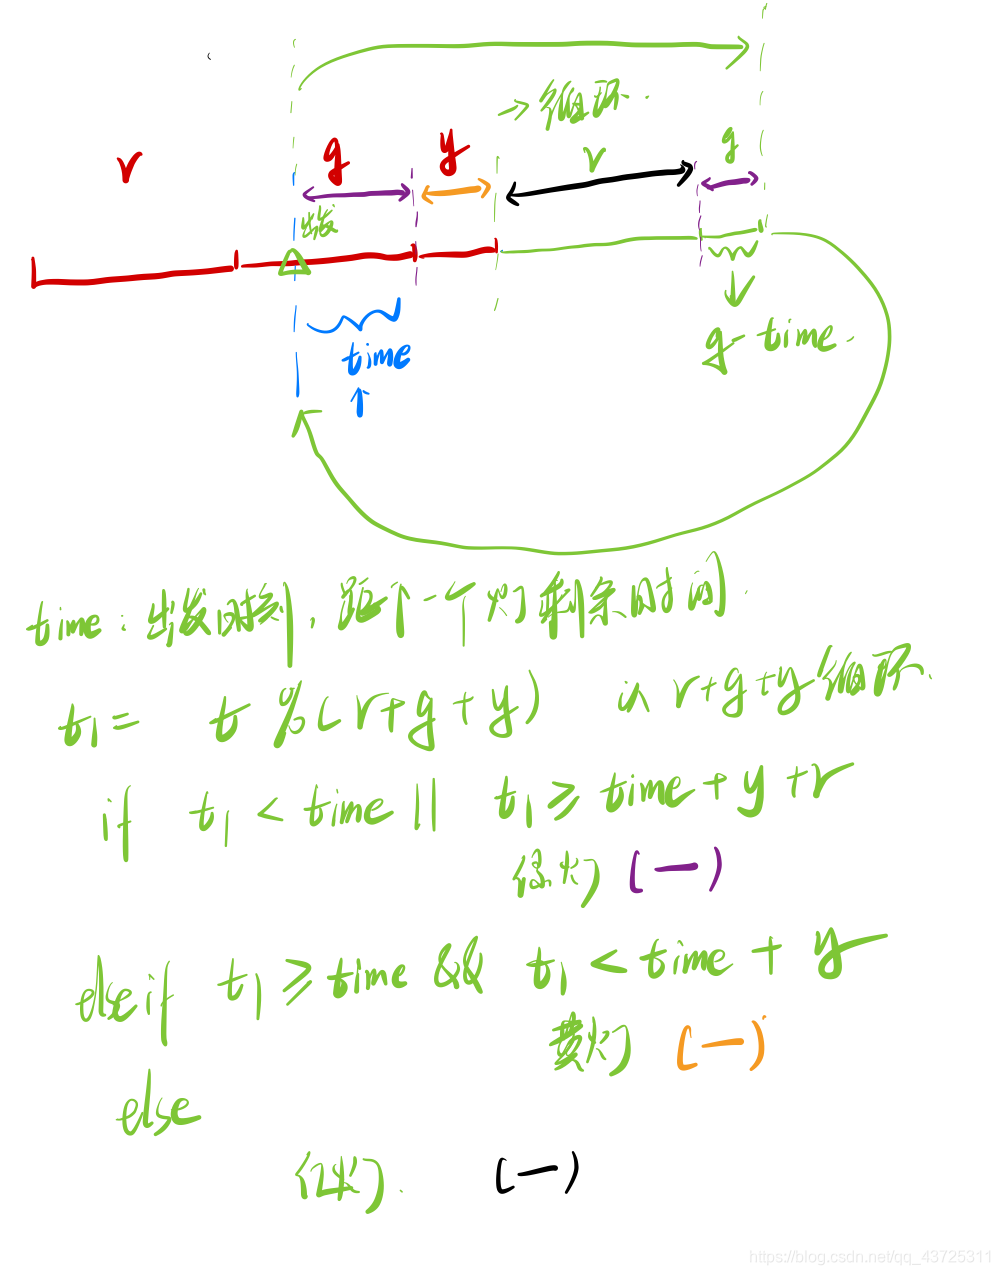 →循环.
r g y r g
出发
time
g-time.
time:出发时刻,距下一个灯剩余时间.
t1= t %(r+g+y) 以r+g+y循环.
if t1<time || t1≥time+y+r
绿灯(一)
else if t1≥time && t1<time+y
黄灯(一)
else
红灯. (一)
https://blog.csdn.net/qq_43725311